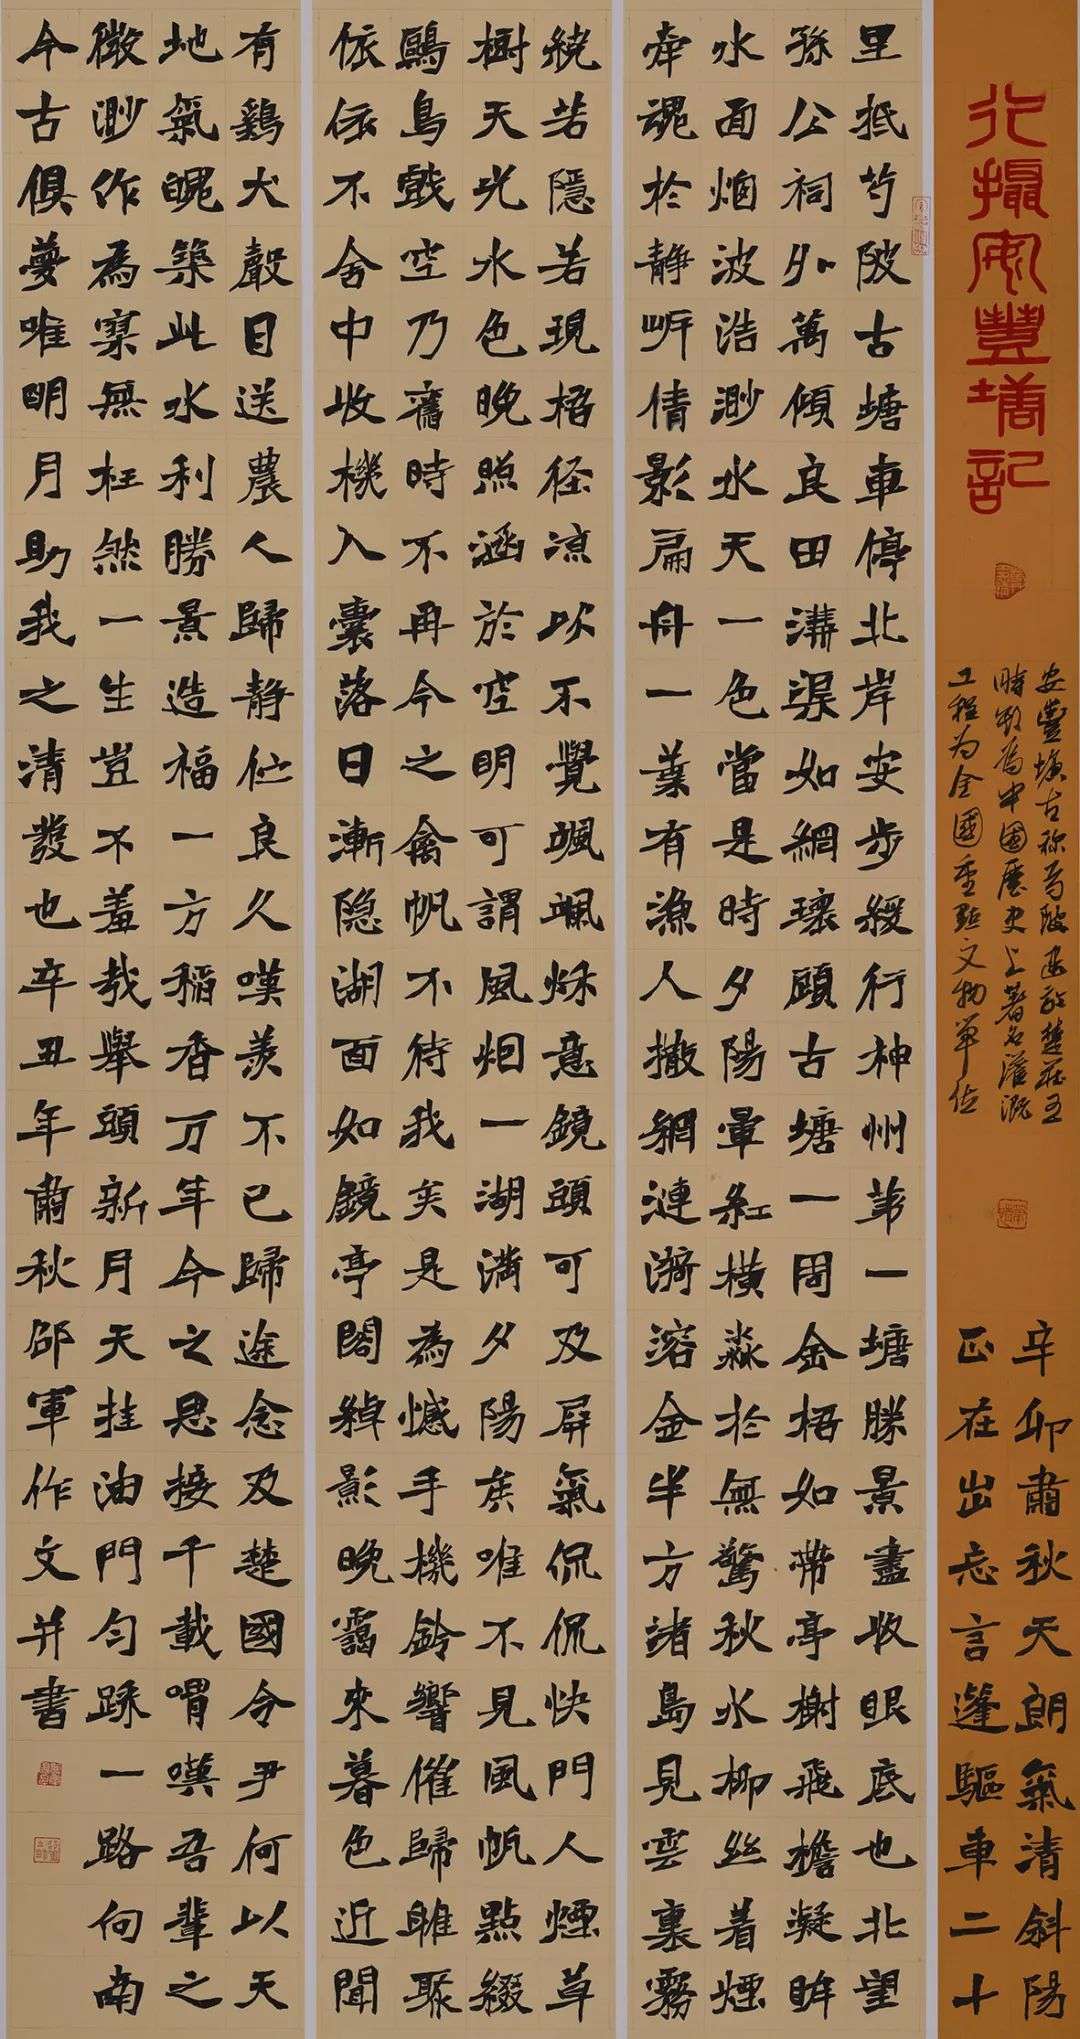 行攝安豐塘記
安豐塘古称芍陂建於楚莊王
時期為中國歷史上著名灌溉
工程为全國重點文物單位
辛卯肅秋天朗氣清斜陽
正在出忘言蓬驅車二十
里抵芍陂古塘車停北岸安步緩行神州苐一塘勝景盡收眼底也北望
孫公祠外萬傾良田溝渠如網環顧古塘一周金梧如帶亭榭飛檐凝眸
水面烟波浩渺水天一色當是時夕陽暈紅橫淼於無驚秋水柳丝着煙
牵魂於静听倩影扁舟一葉有漁人撒網漣漪溶金半方渚島見雲裏霧
繞若隱若現梧径涼以不覺颯颯秋意鏡頭可及屏氣侃侃快門人煙草
樹天光水色晚照涵於空明可謂風烟一湖满夕陽矣唯不見風帆點綴
鷗鳥戲空乃舊時不再今之禽帆不待我矣是為憾手機鈴響催歸雎聚
依依不舍中收機入囊落日漸隐湖面如鏡亭閣綽影晚靄來暮色近聞
有鷄犬聲目送農人歸静伫良久嘆羨不已歸途念及楚國令尹何以天
地氣魄築此水利勝景造福一方稻香万年今之思接千載喟嘆吾輩之
微渺作為寥無枉然一生豈不羞哉舉頭新月天挂油門勻踩一路向南
今古俱夢唯明月助我之清發也辛丑年肅秋邵軍作文并書